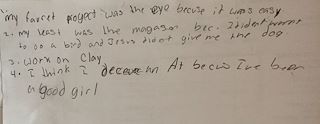 my farcet progect was the eye becuse it was easy
2. my least was the magason bec. I dident want
to do a bird and Jesus didnt give me the dog
3. work on clay
4. I think I decerve an At becus Ive been
a good girl